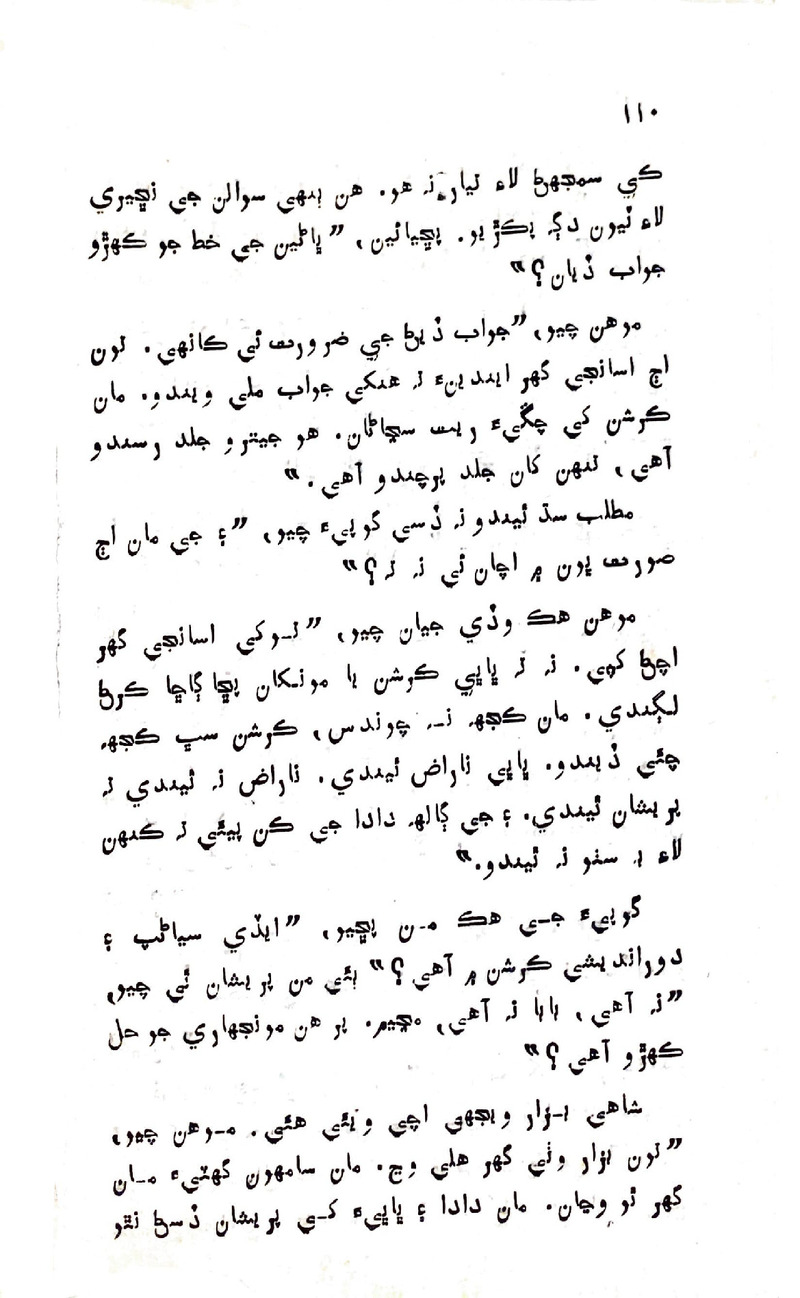 ١١٠
کي سمجهڻ لاءِ تيار نہ هو. هن ٻنهي سوالن جي نڇيري
لاءِ ٽيون دڳہ پڪڙيو. پڇيائين، ”ڀاڻين جي خط جو ڪهڙو
جواب ڏيان؟“
موهن چيو، ”جواب ڏيڻ جي ضرورت ئي ڪانهي. تون
اڄ اسانجي گهر ايندينءَ تہ هنکي جواب ملي ويندو. مان
ڪرشن کي چڱيءَ ريت سڃاڻان. هو جيترو جلد رسندو
آهي، تنهن کان جلد پرچندو آهي.“
مطلب سڌ ٿيندو نہ ڏسي گوپيءَ چيو، ”۽ جي مان اڄ
صورت پون ۾ اچان ئي نہ تہ؟“
موهن هڪ وڏي جيان چيو، ”توکي اسانجي گهر
اچڻ کپي. نہ تہ ڀاپي ڪرشن يا مونکان پڇا ڳاڇا ڪرڻ
لڳندي. مان ڪجهہ نہ چوندس، ڪرشن سڀ ڪجهہ
چئي ڏيندو. ڀاپي ناراض ٿيندي. ناراض نہ ٿيندي تہ
پريشان ٿيندي. ۽ جي ڳالهہ دادا جي ڪن پيئي تہ ڪنهن
لاءِ بہ سٺو نہ ٿيندو.“
گوپيءَ جي هڪ من پڇيو، ”ايڏي سياڻپ ۽
دورانديشي ڪرشن ۾ آهي؟“ ٻئي من پريشان ٿي چيو،
”نہ آهي، بابا نہ آهي، مڃيم. پر هن مونجهاري جو حل
ڪهڙو آهي؟“
شاهي بزار ويجهي اچي ويئي هئي. موهن چيو،
”تون بزار وٺي گهر هلي وڃ. مان سامهون گهٽيءَ مان
گهر ٿو وڃان. مان دادا ۽ ڀاپيءَ کي پريشان ڏسڻ نٿو